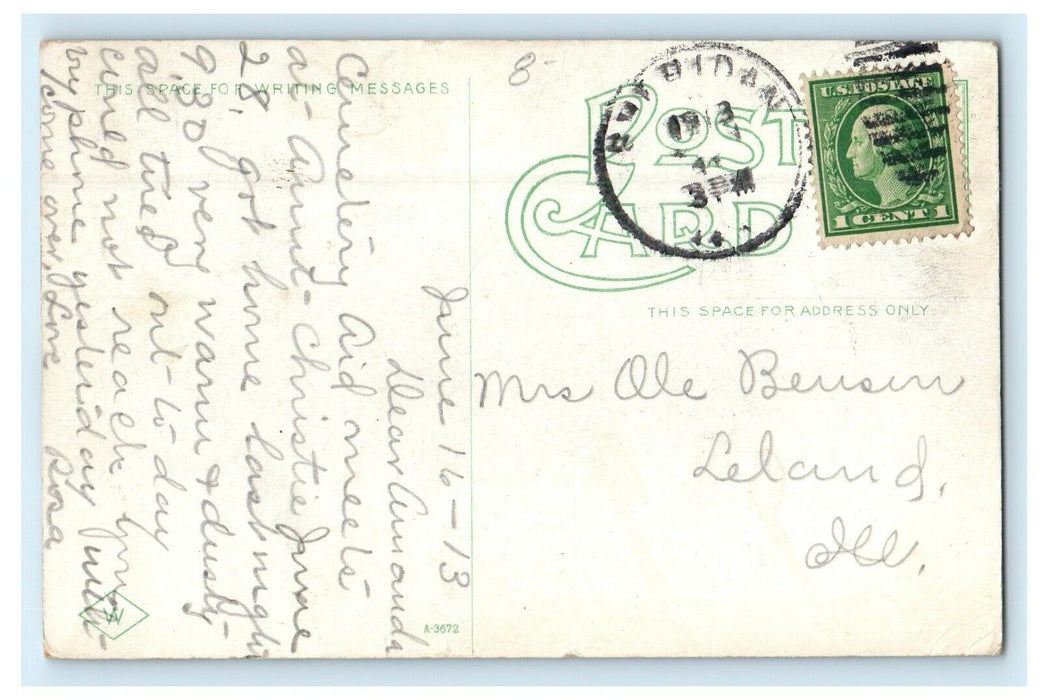 THIS SPACE FOR WRITING MESSAGES
8-
POST
CARD
3 PM
U.S. POSTAGE
1 CENT 1
THIS SPACE FOR ADDRESS ONLY
Mrs Ole Benson
Leland,
Ill.
June 16-13
Dear Amanda
Cemetery Aid meets
at Aunt Christie June
28, got home last night
9:30 very warm & dusty
all tired out to-day
could not reach you
by phone yesterday
come over, Love
Rosa
W
A-3672